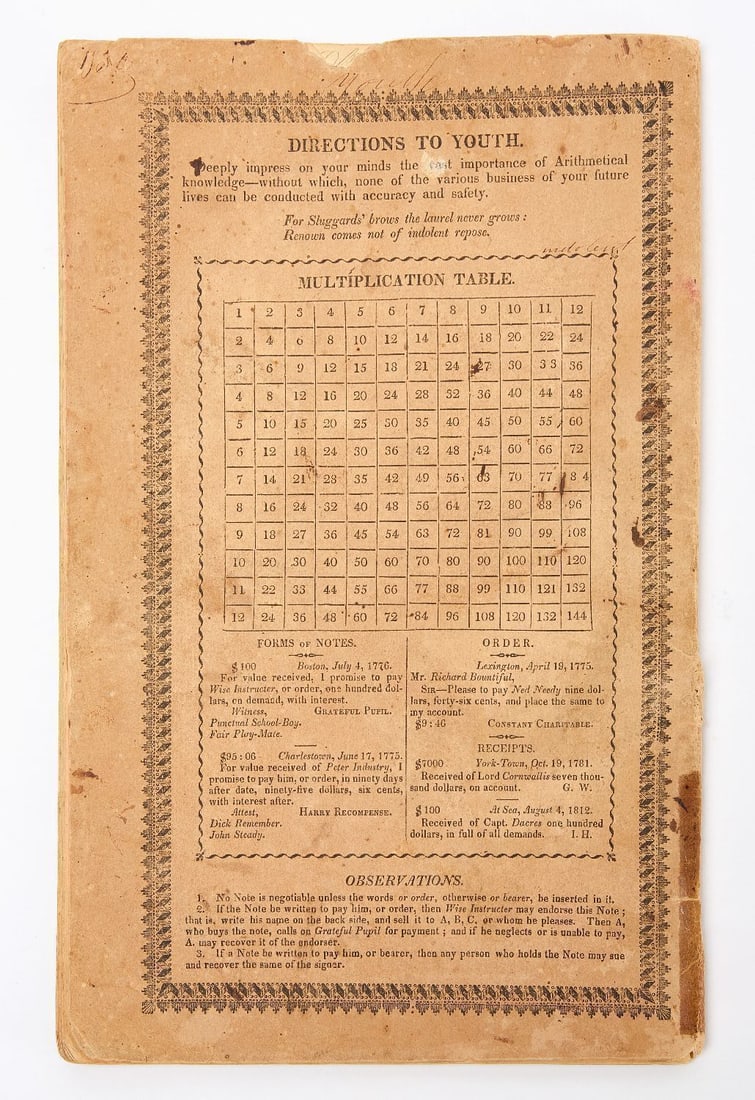 DIRECTIONS TO YOUTH.
Deeply impress on your minds the vast importance of Arithmetical
knowledge—without which, none of the various business of your future
lives can be conducted with accuracy and safety.
For Sluggards' brows the laurel never grows :
Renown comes not of indolent repose.
indolent
MULTIPLICATION TABLE.
1 2 3 4 5 6 7 8 9 10 11 12
2 4 6 8 10 12 14 16 18 20 22 24
3 6 9 12 15 18 21 24 27 30 33 36
4 8 12 16 20 24 28 32 36 40 44 48
5 10 15 20 25 30 35 40 45 50 55 60
6 12 18 24 30 36 42 48 54 60 66 72
7 14 21 28 35 42 49 56 63 70 77 84
8 16 24 32 40 48 56 64 72 80 88 96
9 18 27 36 45 54 63 72 81 90 99 108
10 20 30 40 50 60 70 80 90 100 110 120
11 22 33 44 55 66 77 88 99 110 121 132
12 24 36 48 60 72 84 96 108 120 132 144
FORMS OF NOTES.
$100 Boston, July 4, 1776.
For value received, I promise to pay
Wise Instructer, or order, one hundred dol-
lars, on demand, with interest.
Witness, GRATEFUL PUPIL.
Punctual School-Boy.
Fair Play-Mate.
$95 : 06 Charlestown, June 17, 1775.
For value received of Peter Industry, I
promise to pay him, or order, in ninety days
after date, ninety-five dollars, six cents,
with interest after.
Attest, HARRY RECOMPENSE.
Dick Remember.
John Steady.
ORDER.
Lexington, April 19, 1775.
Mr. Richard Bountiful,
SIR—Please to pay Ned Needy nine dol-
lars, forty-six cents, and place the same to
my account.
$9 : 46 CONSTANT CHARITABLE.
RECEIPTS.
$7000 York-Town, Oct. 19, 1781.
Received of Lord Cornwallis seven thou-
sand dollars, on account. G. W.
$100 At Sea, August 4, 1812.
Received of Capt. Dacres one hundred
dollars, in full of all demands. I. H.
OBSERVATIONS.
1. No Note is negotiable unless the words or order, otherwise or bearer, be inserted in it.
2. If the Note be written to pay him, or order, then Wise Instructer may endorse this Note ;
that is, write his name on the back side, and sell it to A, B, C, or whom he pleases. Then A,
who buys the note, calls on Grateful Pupil for payment ; and if he neglects or is unable to pay,
A. may recover it of the endorser.
3. If a Note be written to pay him, or bearer, then any person who holds the Note may sue
and recover the same of the signer.